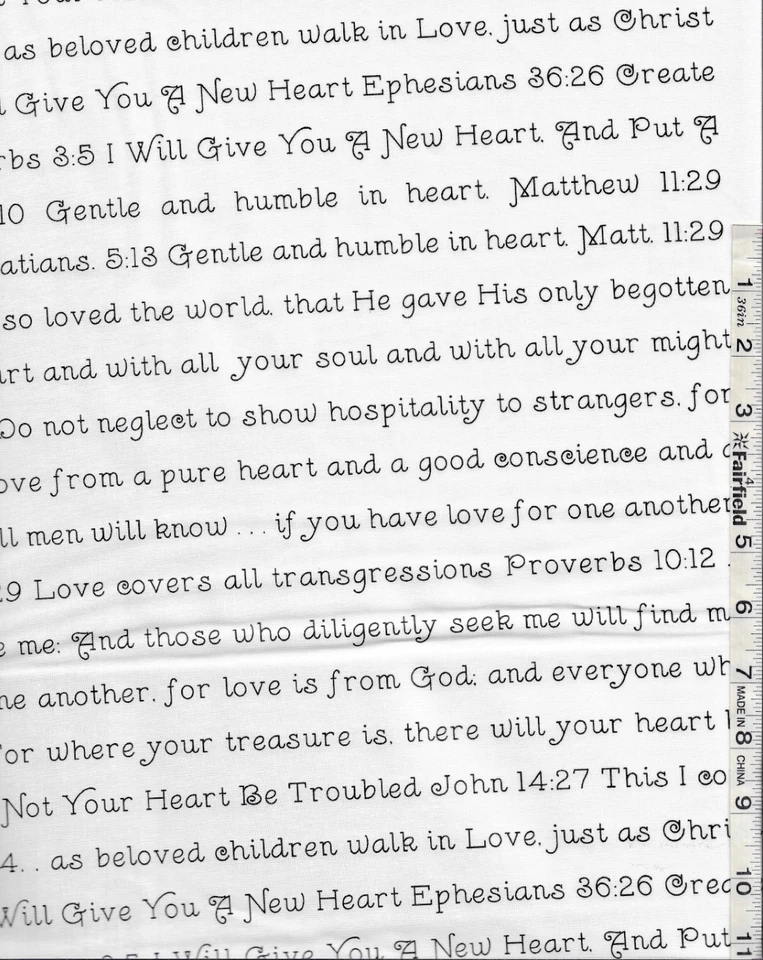 as beloved children walk in Love, just as Christ
Give You A New Heart Ephesians 36:26 Create
rbs 3:5 I Will Give You A New Heart, And Put A
10 Gentle and humble in heart, Matthew 11:29
atians. 5:13 Gentle and humble in heart. Matt. 11:29
so loved the world, that He gave His only begotten
art and with all your soul and with all your might
Do not neglect to show hospitality to strangers, for
ove from a pure heart and a good conscience and
ll men will know ... if you have love for one another
:9 Love covers all transgressions Proverbs 10:12
e me; And those who diligently seek me will find m
ne another, for love is from God; and everyone wh
For where your treasure is, there will your heart
Not Your Heart Be Troubled John 14:27 This I co
4. . as beloved children walk in Love, just as Chri
Will Give You A New Heart Ephesians 36:26 Crea
3:5 I Will Give You A New Heart, And Put
1
36in
2
3
4
Fairfield
5
6
7
MADE IN
8
CHINA
9
10
11